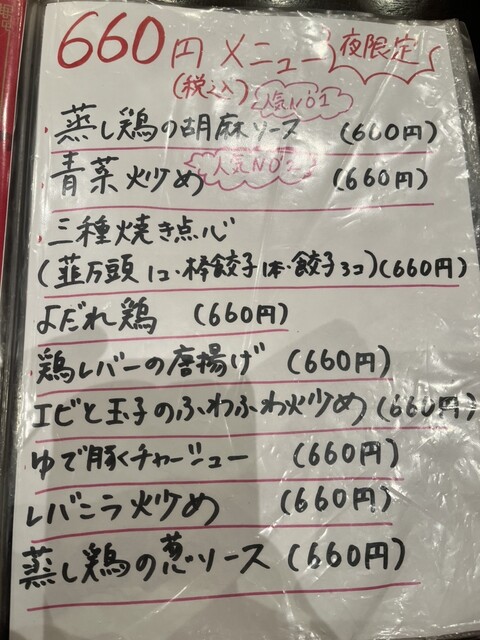 660円メニュー 夜限定
(税込) 人気NO1
・蒸し鶏の胡麻ソース (660円)
人気NO
・青菜炒め (660円)
・三種焼き点心
(韮万頭1コ・棒餃子1本・餃子3コ)(660円)
よだれ鶏 (660円)
鶏レバーの唐揚げ (660円)
エビと玉子のふわふわ炒め (660円)
ゆで豚くチャーシュー (660円)
レバニラ炒め (660円)
蒸し鶏の葱ソース (660円)